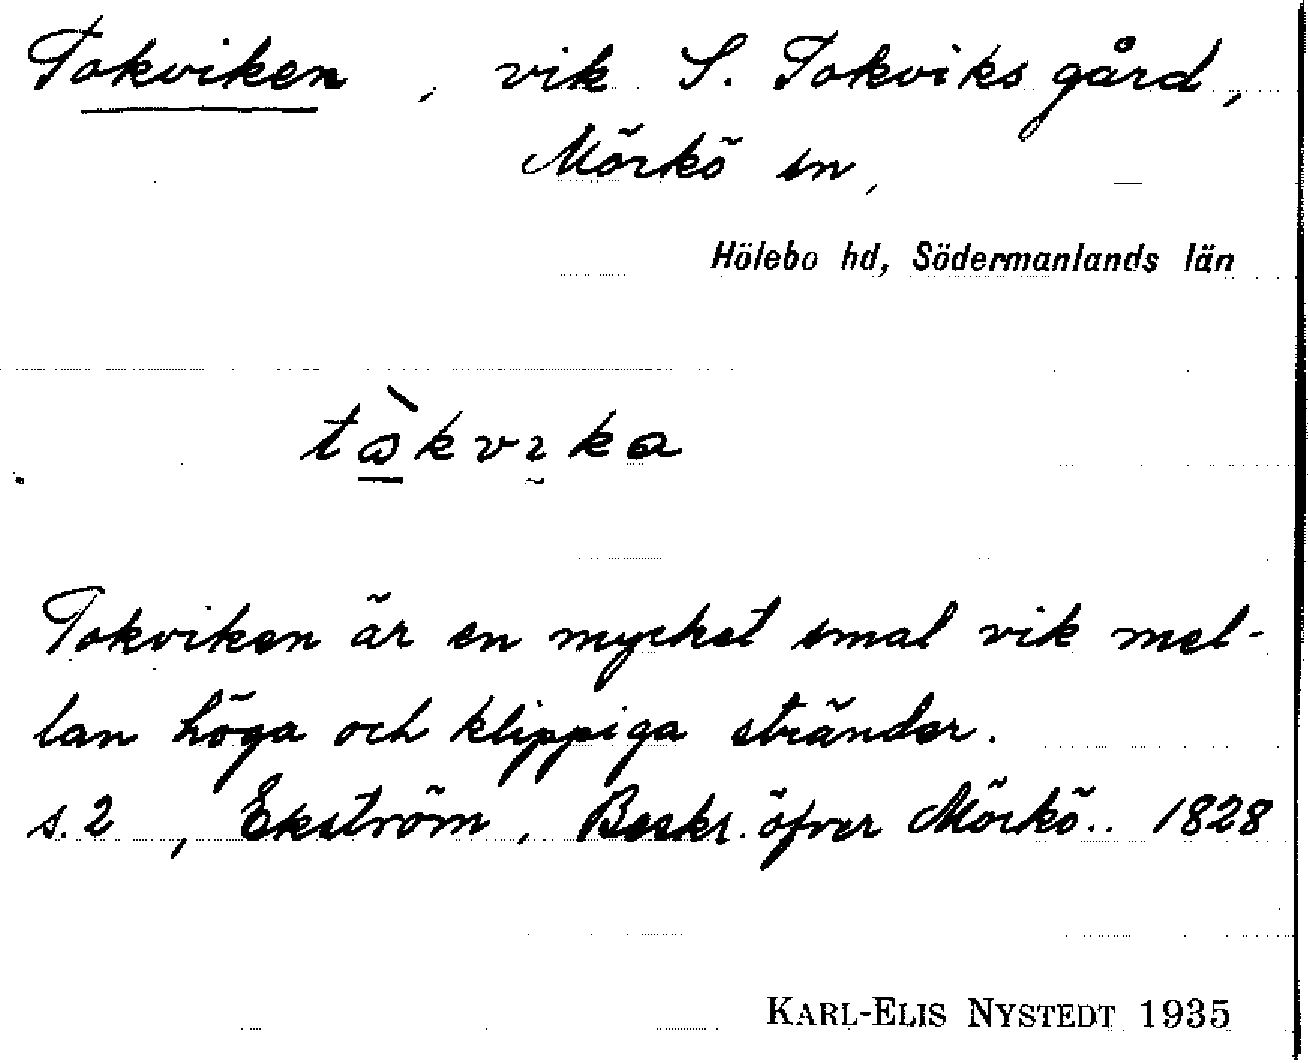 Tokviken, vik S. Tokviks gård,
Mörkö sn,
Hölebo hd, Södermanlands län
tòkvıka
Tokviken är en mycket smal vik mel-
lan höga och klippiga stränder.
s. 2, Ekström, Beskr. öfver Mörkö.. 1828
KARL-ELIS NYSTEDT 1935